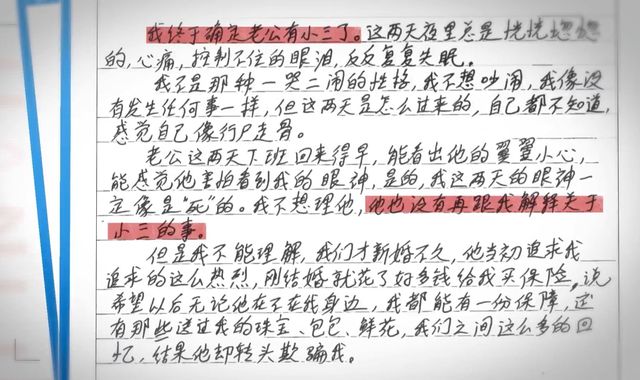 我终于确定老公有小三了。这两天夜里总是恍恍惚惚
的，心痛，控制不住的眼泪，反反复复失眠。
我不是那种一哭二闹的性格，我不想吵闹，我像没
有发生任何事一样，但这两天是怎么过来的，自己都不知道，
感觉自己像行尸走骨。
老公这两天下班回来得早，能看出他的翼翼小心，
能感觉他害怕看到我的眼神，是的，我这两天的眼神一
定像是“死”的。我不想理他，他也没有再跟我解释关于
小三的事。
但是我不能理解，我们才新婚不久，他当初追求我
追求的这么热烈，刚结婚就花了好多钱给我买保险，说
希望以后无论他在不在我身边，我都能有一份保障，还
有那些送过我的珠宝、包包、鲜花，我们之间这么多的回
忆，结果他却转头欺骗我。